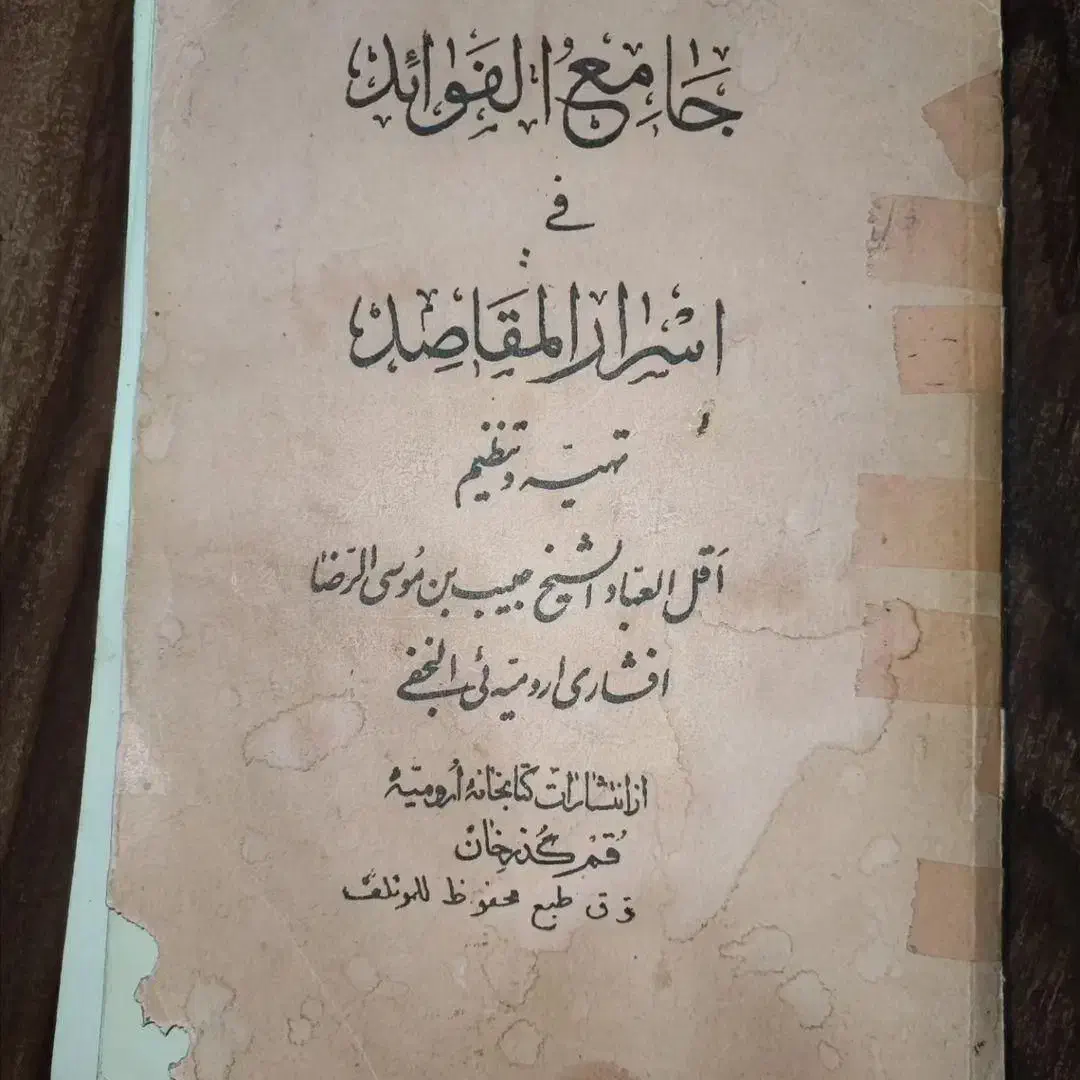 جَامِعُ الفَوَائِد
في
اَسْرارِ المَقَاصِد
تهیّه و تنظیم
اَقل العبّاد الشیخ حبیب بن مُوسی الرّضا
افشاری ارومیّه ئی النجفی
از انتشارات کتابخانهٔ اُرومیّهٔ
قم گذرخان
طبع محفوظ للمؤلف